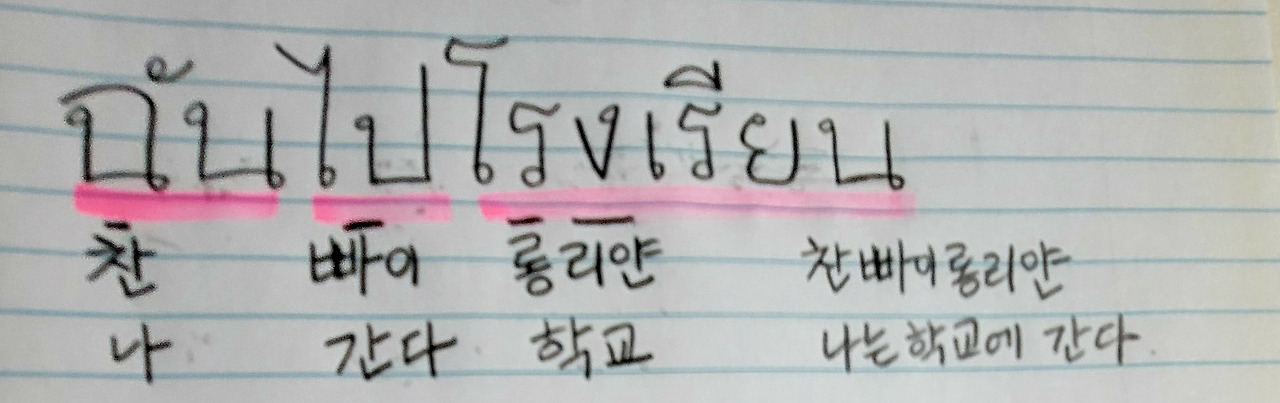 ฉันไปโรงเรียน
찬 빠이 롱리얀 찬빠이롱리얀
나 간다 학교 나는학교에 간다.